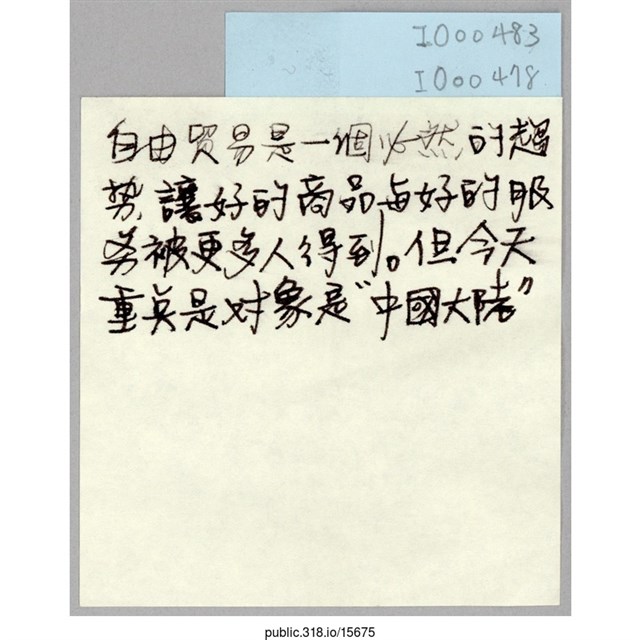 I000483
I000478
自由贸易是一個必然的趨
势讓好的商品与好的服
务被更多人得到。但今天
重点是对象是"中國大陸"
public.318.io/15675